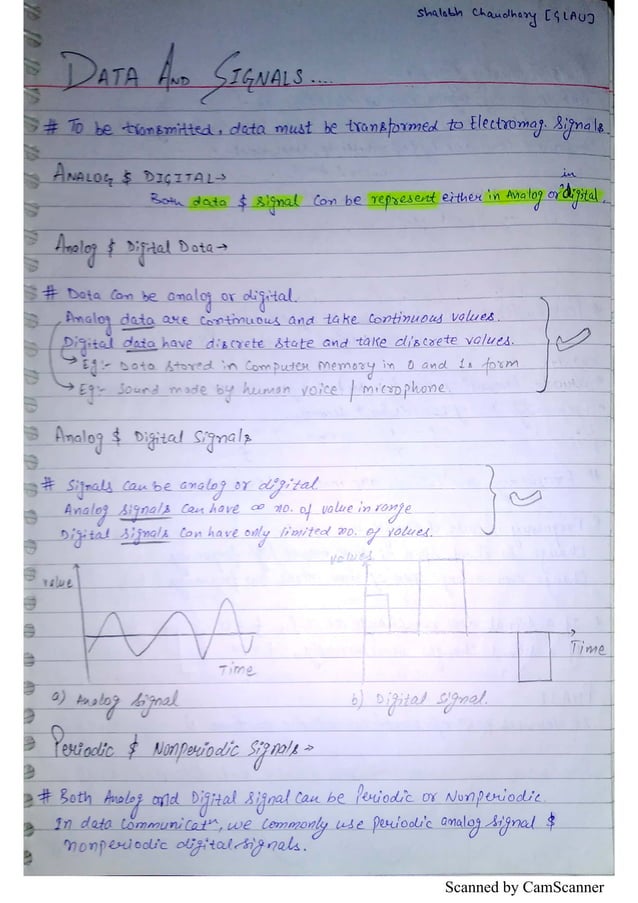 Shalabh Chaudhary [GLAU]
DATA AND SIGNALS....
# To be transmitted, data must be transformed to Electromag. Signals.
ANALOG & DIGITAL→
Both data & signal can be represent either in Analog or in digital.
Analog & Digital Data→
# Data can be analog or digital.
Analog data are continuous and take continuous values.
Digital data have discrete state and take discrete values.
→ Eg:- Data stored in Computer memory in 0 and 1s form
→ Eg:- Sound made by human voice / microphone.
Analog & Digital Signals
# Signals can be analog or digital
Analog signals can have ∞ no. of value in range
Digital signals can have only limited no. of values.
value
values
Time
Time
a) Analog Signal
b) Digital Signal.
Periodic & Nonperiodic Signals→
# Both Analog and Digital signal can be Periodic or Nonperiodic.
In data communicatn, we commonly use periodic analog signal &
nonperiodic digital signals.
Scanned by CamScanner